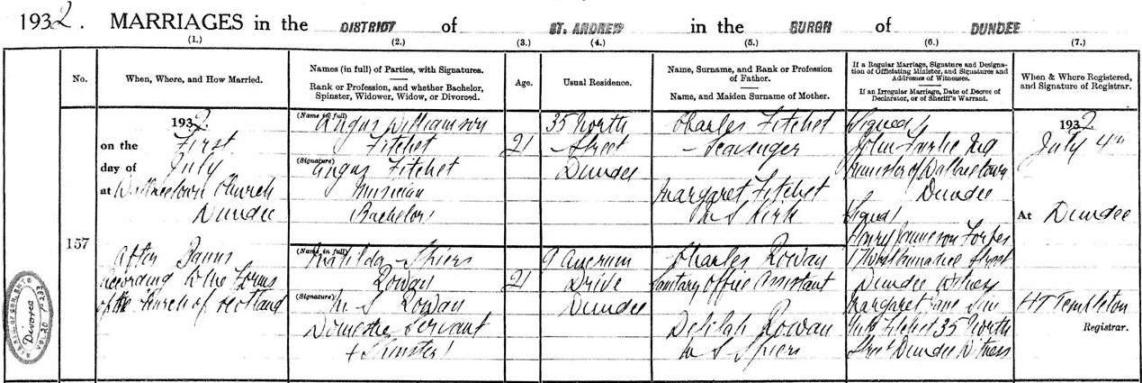 1932. MARRIAGES in the DISTRICT of ST. ANDREW in the BURGH of DUNDEE
(1.) (2.) (3.) (4.) (5.) (6.) (7.)
No.
When, Where, and How Married.
Names (in full) of Parties, with Signatures.
Rank or Profession, and whether Bachelor,
Spinster, Widower, Widow, or Divorced.
Age.
Usual Residence.
Name, Surname, and Rank or Profession
of Father.
Name, and Maiden Surname of Mother.
If a Regular Marriage, Signature and Designa-
tion of Officiating Minister, and Signatures and
Addresses of Witnesses.
If an Irregular Marriage, Date of Decree of
Declarator, or of Sheriff's Warrant.
When & Where Registered,
and Signature of Registrar.
157
1932
on the First
day of July
at Wallacetown Church
Dundee
After Banns
According to the Forms
of the Church of Scotland
(Name in full)
Angus Williamson
Fitchet
(Signature)
Angus Fitchet
Musician
Bachelor
21
35 North
Street
Dundee
Charles Fitchet
Scavenger
Margaret Fitchet
M S Kirk
Signed
John
Minister of Wallacetown
Dundee
Signed
Henry Jameson Forbes
Street
Dundee Witness
Margaret Jane
Fitchet 35 North
Street Dundee Witness
(Name in full)
Matilda Spiers
Rowan
(Signature)
M. S Rowan
Domestic Servant
Spinster
21
9
Drive
Dundee
Charles Rowan
Sanitary Office Assistant
Delilah Rowan
M S Spiers
1932
July 4th
At Dundee
Templeton
Registrar.
Divorce